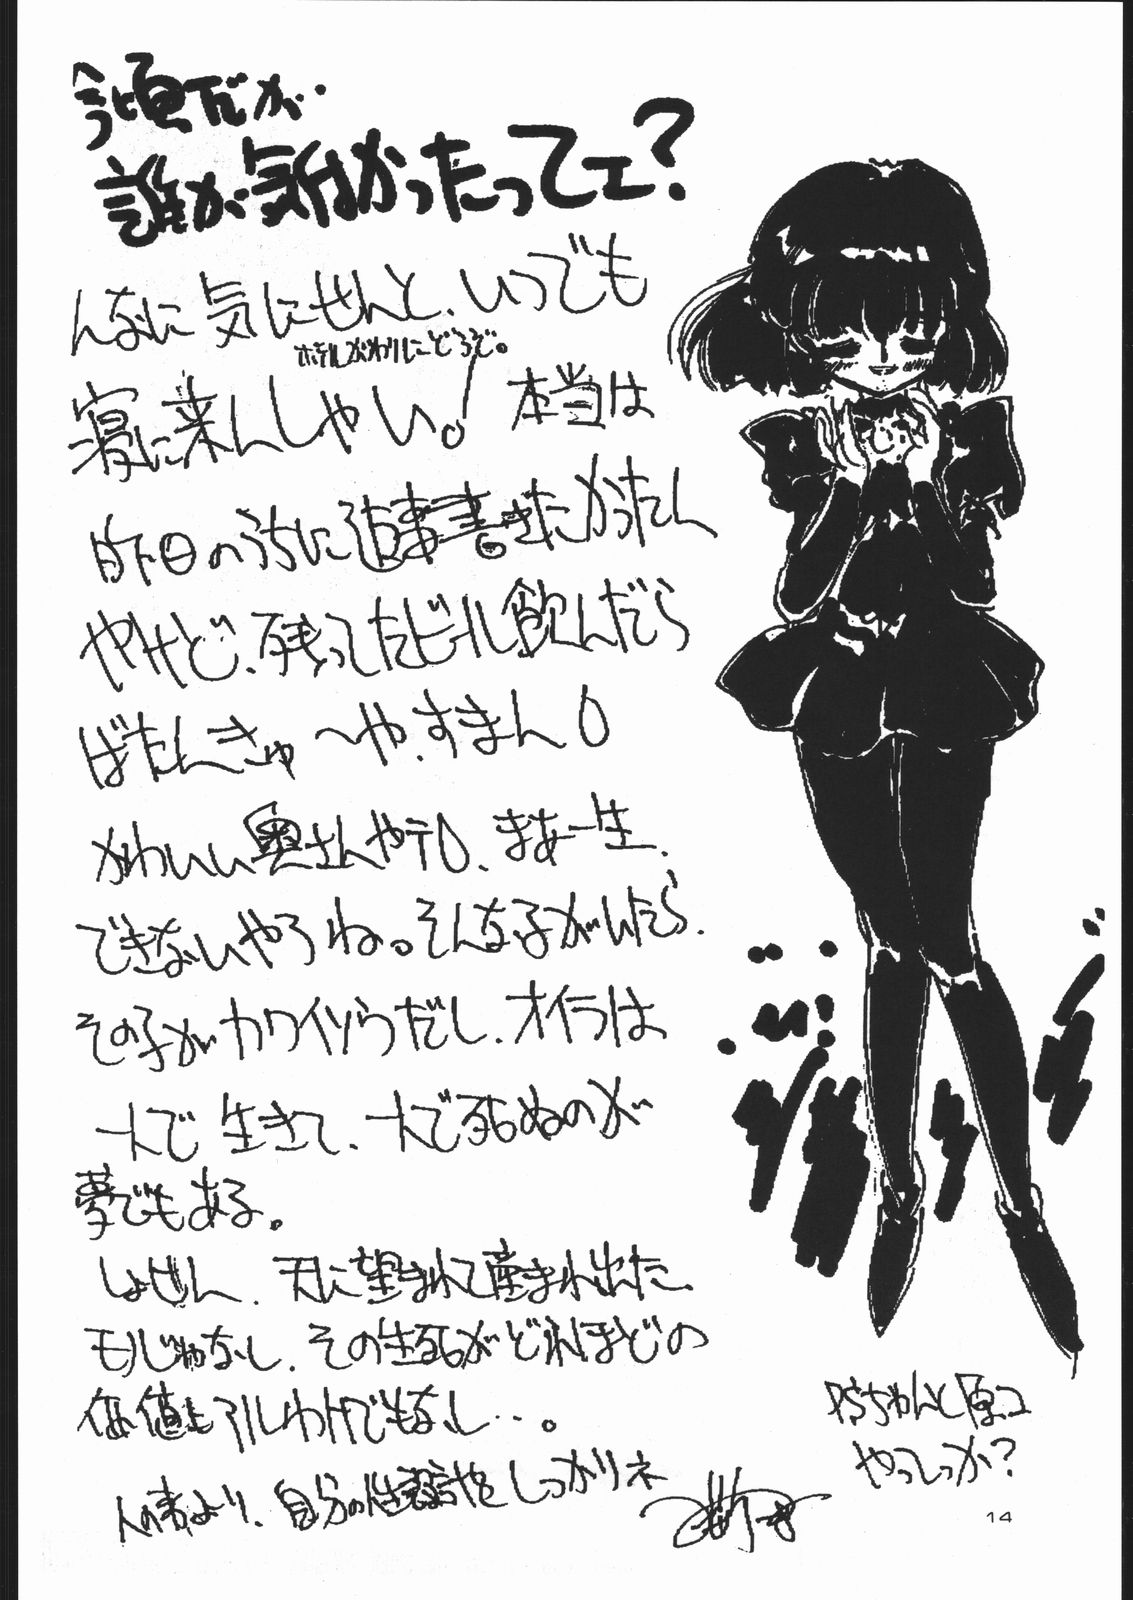 今頃だが・・
誰が気付かったってェ?
んなに気にせんと、いつでも
ホテルがわりにどうぞ。
寝に来んしゃい。! 本当は
昨日のうちに返事書きたかったん
やけど、残ってたビール飲んだら
ばたんきゅ〜や、すまん
かわいい奥さんや〒、まあ一生、
できないやろね。そんな子がいたら、
その子がカワイソうだし、オイラは
一人で生きて、一人で死ぬのが
夢でもある。
しょせん、天に望まれて産まれ出た
モノじゃなし、その生死がどれほどの
価値もアルわけでもなし…。
人の事より、自分の をしっかりネ
ちゃんと原コ
やってっか?
14